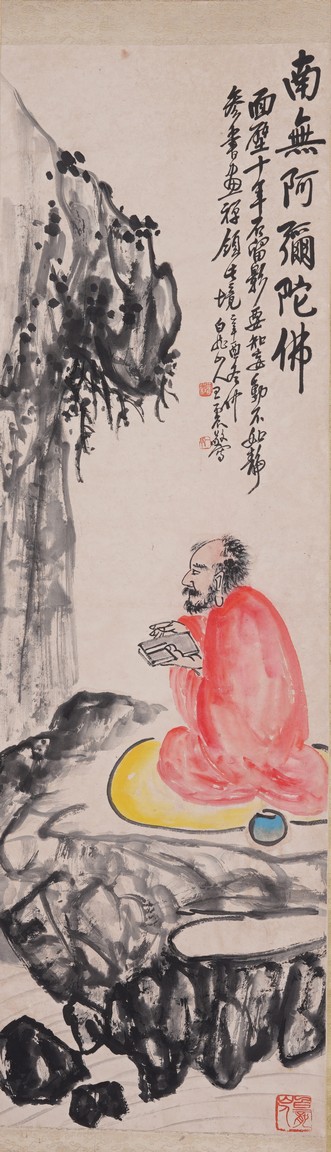 南無阿彌陀佛
面壁十年石留影要知妄動不如靜
參書畫禪領生境辛酉冬仲
白龍山人王震敬寫